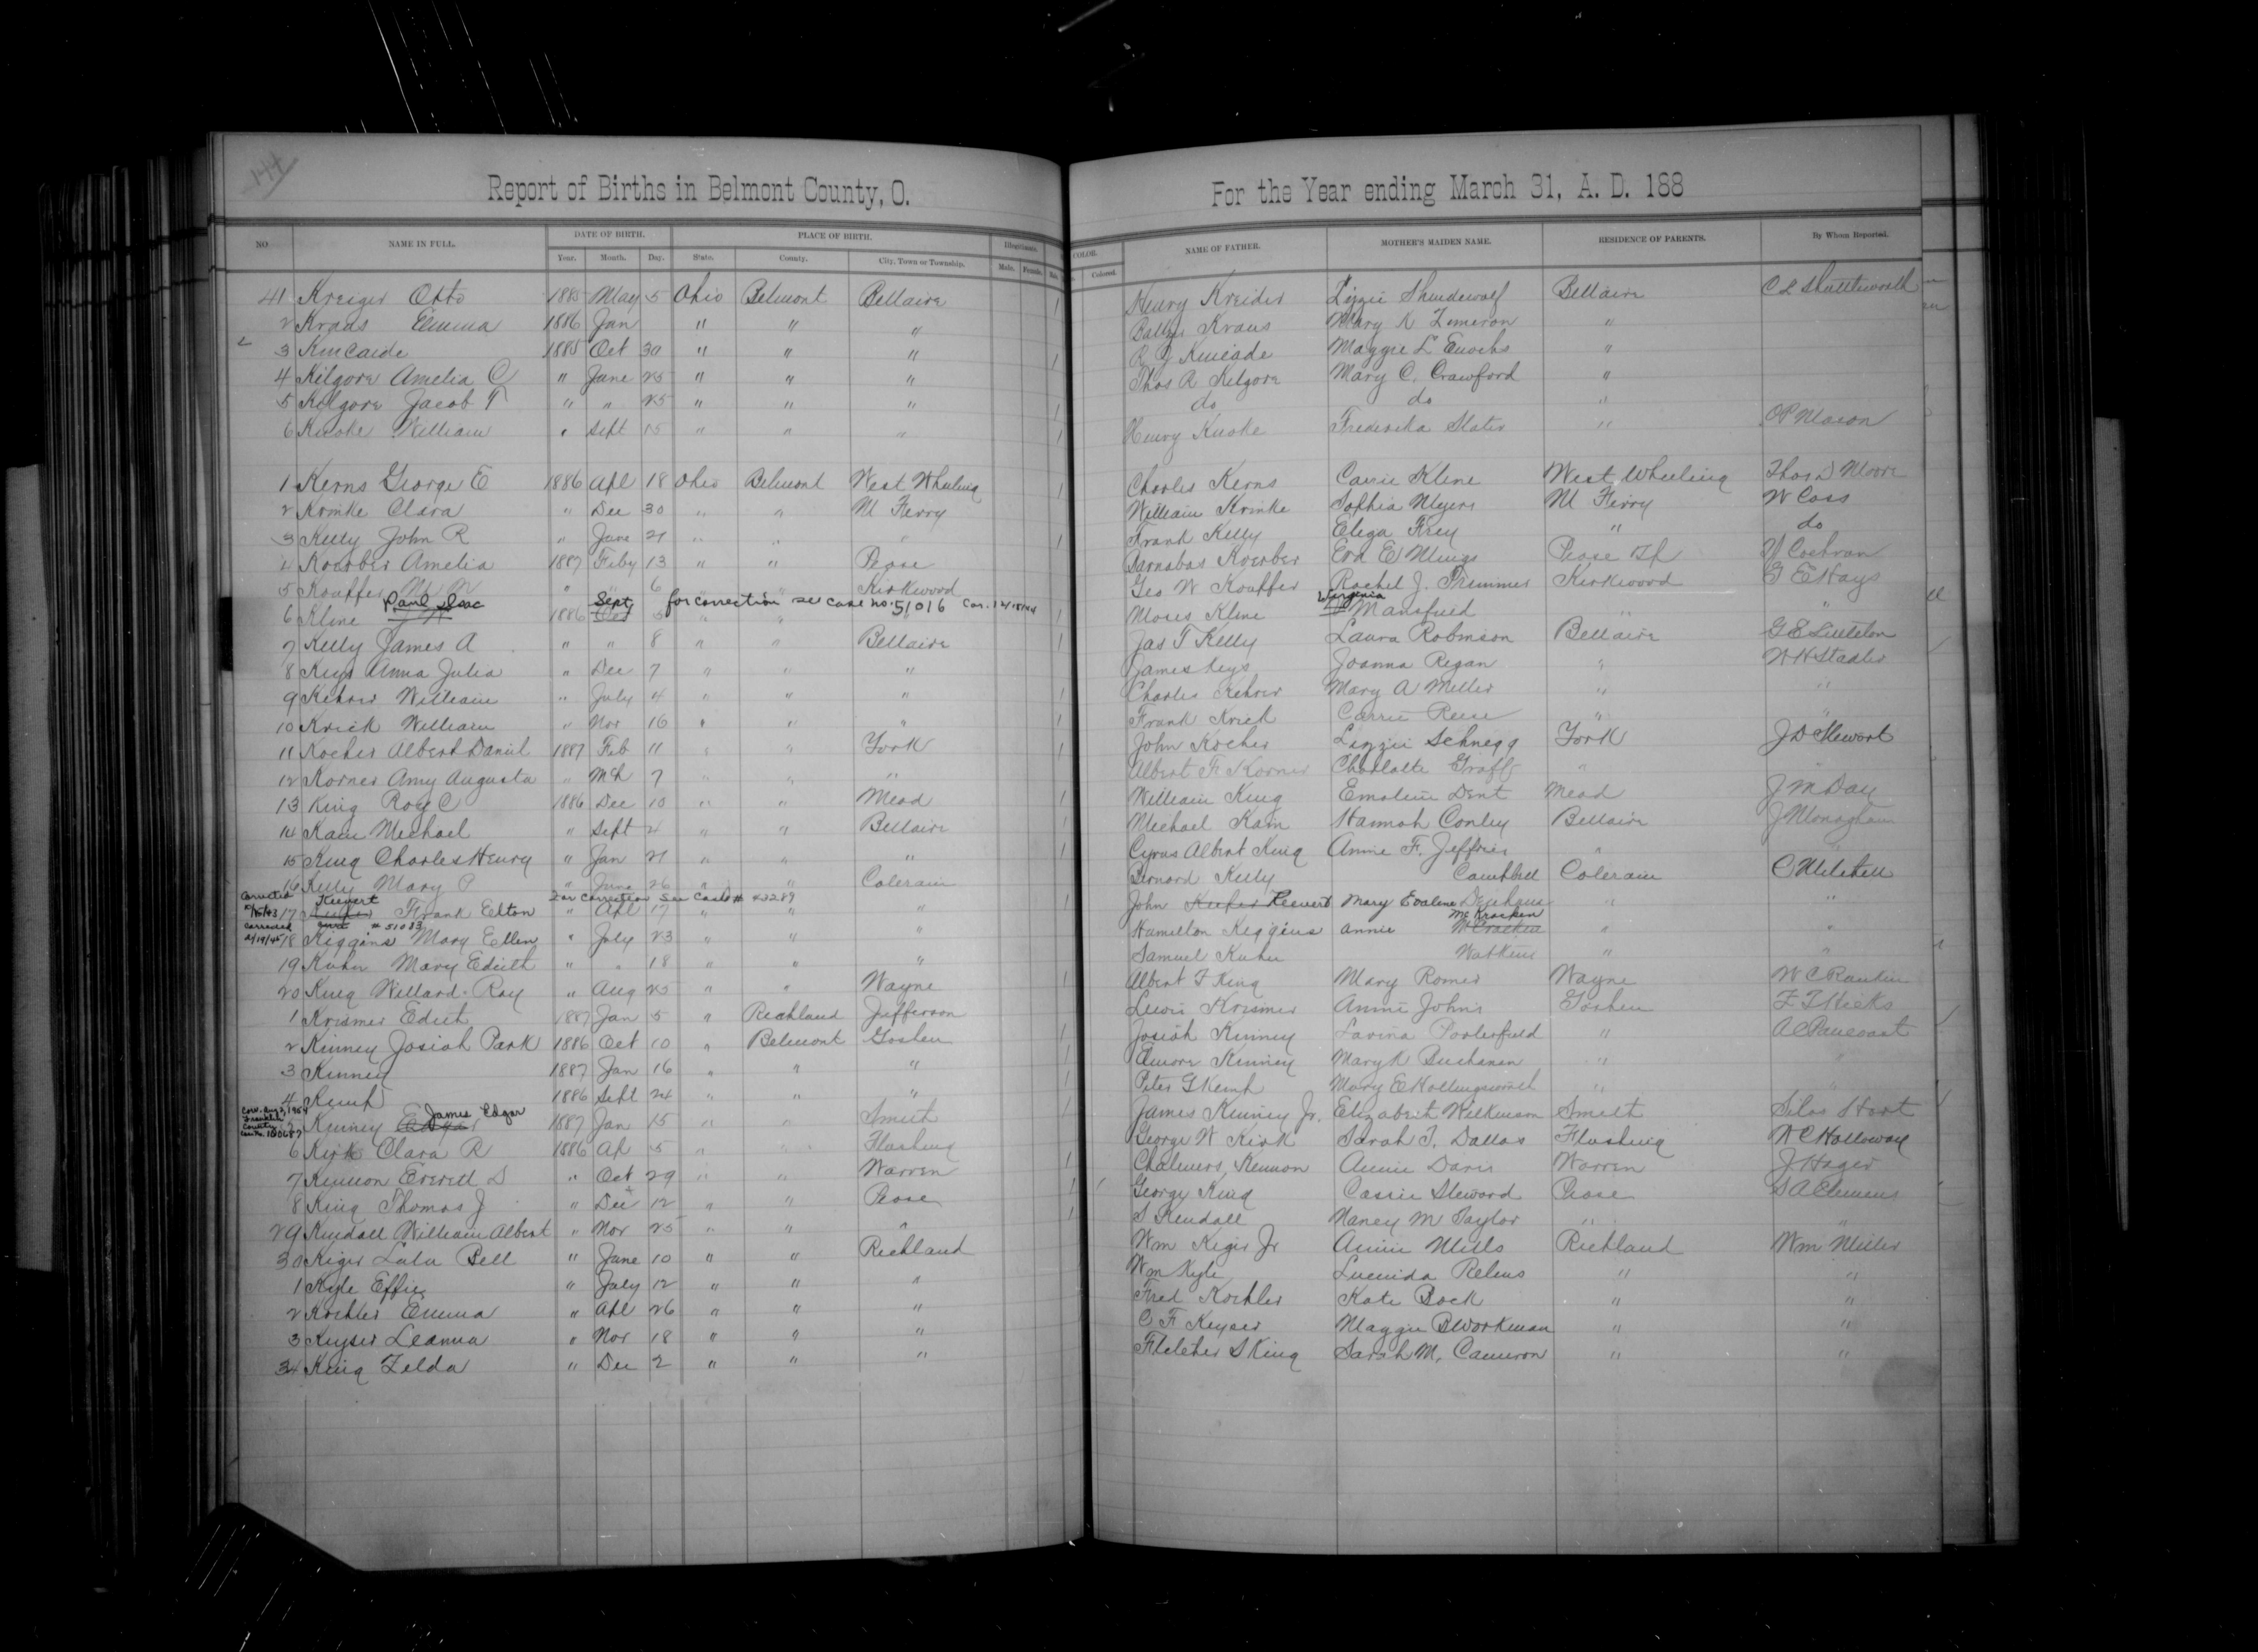 144
Report of Births in Belmont County, O. For the Year ending March 31, A. D. 188
NO NAME IN FULL. DATE OF BIRTH. PLACE OF BIRTH. Illegitimate. COLOR. NAME OF FATHER. MOTHER'S MAIDEN NAME. RESIDENCE OF PARENTS. By Whom Reported.
Year. Month. Day. State. County. City, Town or Township. Male. Female. Colored.
41 Kreiger Otto 1885 May 5 Ohio Belmont Bellaire 1 Henry Kreider Lizzie Bellaire C L Shuttleworth
2 Kraus Emma 1886 Jan " " " Kraus Mary K Zimeron "
3 Kincaide 1885 Oct 30 " " " 1 R J Kincade Maggie L Enochs "
4 Kilgore Amelia C " June 25 " " " Thos R Kilgore Mary C. Crawford "
5 Kilgore Jacob T " " 25 " " " 1 do do "
6 Knoke William " Sept 15 " " " 1 Henry Knoke Frederika Slater " O P Mason
1 Kerns George E 1886 Apl 18 Ohio Belmont West Wheeling 1 Charles Kerns Carrie Kline West Wheeling Thos D Moore
2 Krinke Clara " Dec 30 " " M Ferry William Krinke Sophia Myers M Ferry W Cass
3 Kelly John R " June 21 " " " 1 Frank Kelly Eliza Frey " do
4 Koerber Amelia 1887 Feby 13 " " Pease Barnabas Koerber Eva E Mings Pease Tp Y Cochran
5 Kouffer M W " " 6 " Kirkwood Geo W Kouffer Rachel J. Trimmer Kirkwood G E Hays
Paul Isaac Sept for correction see case no. 51016 Cor. 12/18/44 Virginia
6 Kline 1886 Oct 5 " " 1 Moses Kline Mansfield " "
7 Kelly James A " " 8 " " Bellaire 1 Jas T Kelly Laura Robinson Bellaire G E Littleton
8 Keys Anna Julia " Dec 7 " " " James Keys Joanna Regan " W H Stadler
9 Kehrer William " July 4 " " " 1 Charles Kehrer Mary A Miller " "
10 Krick William " Nov 16 " " " 1 Frank Krick Carrie Reese " "
11 Kocher Albert Daniel 1887 Feb 11 " " York 1 John Kocher Lizzie Schnegg York J D Stewart
12 Korner Amy Augusta " Mch 7 " " " Albert F Korner Charlotte Graff " "
13 King Roy C 1886 Dec 10 " " Mead 1 William King Emoline Dent Mead J M Day
14 Kain Michael " Sept 4 " " Bellaire 1 Michael Kain Hannah Conley Bellaire J Monaghan
15 King Charles Henry " Jan 21 " " " 1 Cyrus Albert King Annie F. Jeffries " "
16 Kelly Mary P " June 26 " " Colerain Bernard Kelly Campbell Colerain C Mitchell
Corrected Kievert For Correction See Case # 43289
17 Frank Elton " Apl 17 " " " 1 John Keefer Keevert Mary Evaline " "
Corrected # 51083 McKracken
2/19/45 18 Kiggins Mary Ellen " July 23 " " " Hamilton Kiggins Annie McCracken " "
19 Kuhn Mary Edith " " 18 " " " Samuel Kuhn Watkins " "
20 King Willard Ray " Aug 25 " " Wayne 1 Albert F King Mary Romer Wayne W C Rankin
1 Krismer Edith 1887 Jan 5 " Richland Jefferson Lewis Krismer Annie Johns Goshen F T Hicks
2 Kinney Josiah Park 1886 Oct 10 " Belmont Goshen 1 Josiah Kinney Lavina Porterfield " A C Pancoast
3 Kinney 1887 Jan 16 " " " 1 Elmore Kinney Mary K Buchanan " "
4 Kemp 1886 Sept 24 " " " 1 Peter G Kemp Mary E Hollingsworth " "
Corr. Aug 2, 1954 Franklin County Case No. 180687 James Edgar
Kinney Edgar 1887 Jan 15 " " Smith 1 James Kinney Jr. Elizabeth Wilkinson Smith Silas Hart
6 Kirk Clara R 1886 Ap 5 " " Flushing George W Kirk Sarah T. Dallas Flushing N C Holloway
7 Kennon Everett D " Oct 29 " " Warren 1 Chalmers Kennon Annie Davis Warren J Hager
8 King Thomas J " Dec 12 " " Pease 1 George King Cassie Steward Pease S A Clemens
29 Kendall William Albert " Nov 25 " " " 1 S Kendall Nancy M Taylor " "
30 Kiger Lula Bell " June 10 " " Richland Wm Kiger Jr Annie Mills Richland Wm Miller
1 Kyle Effie " July 12 " " " Wm Kyle Lucinda " "
2 Koehler Emma " Apl 26 " " " Fred Koehler Kate Bock " "
3 Keyser Leanna " Nov 18 " " " C F Keyser Maggie B Workman " "
34 King Zelda " Dec 2 " " " Fletcher S King Sarah M. Cameron " "